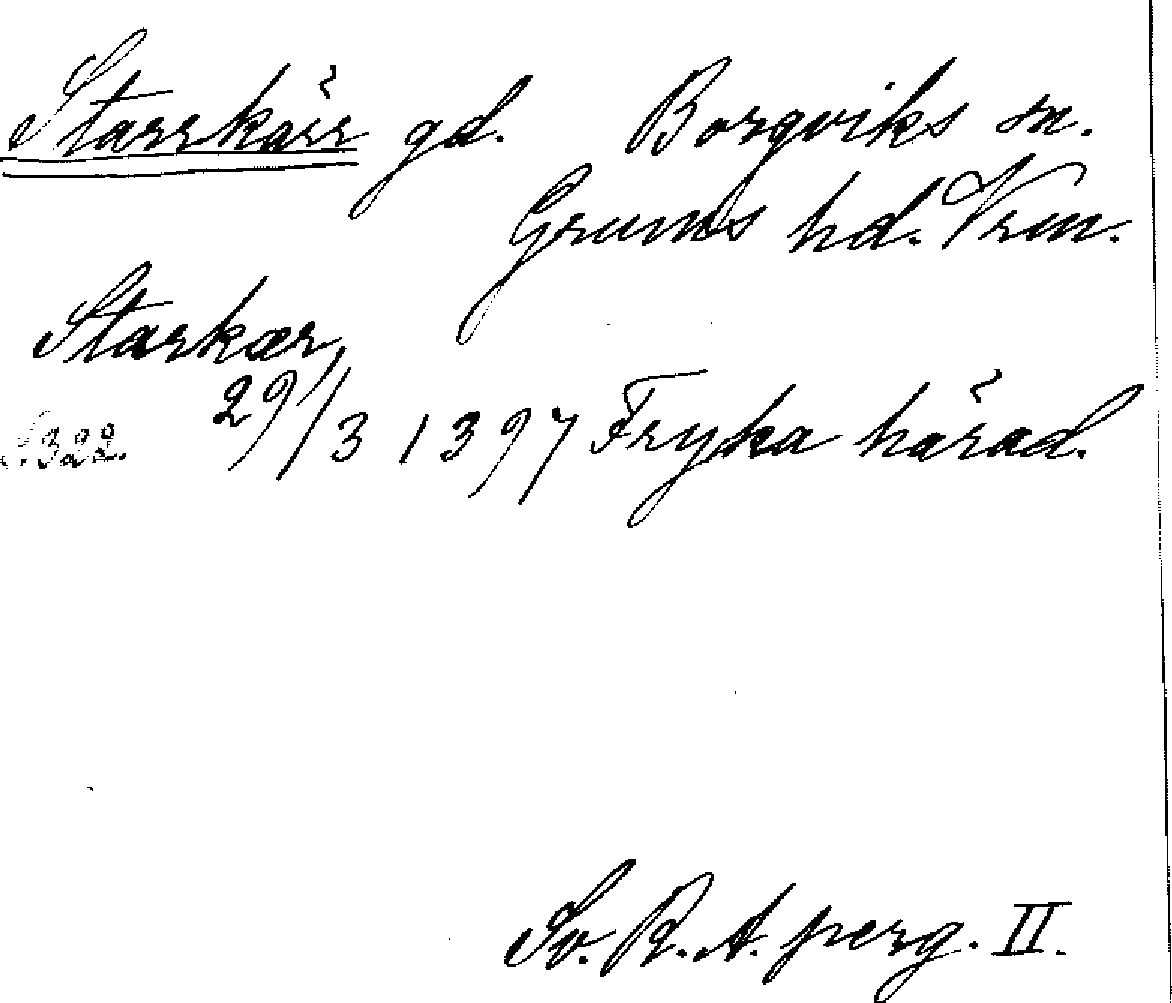 Starrkärr gd. Borgviks sn.
Grums hd. Vrm.
Starkær,
s.322. 29/3 1397 Fryka härad.
Sv. R. A. perg. II.